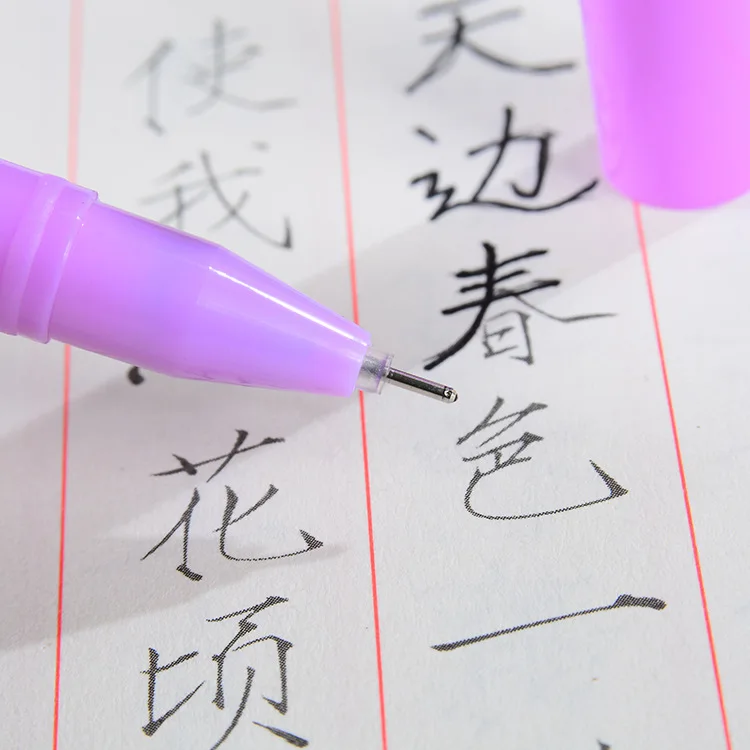 天边春色一
使我花顷